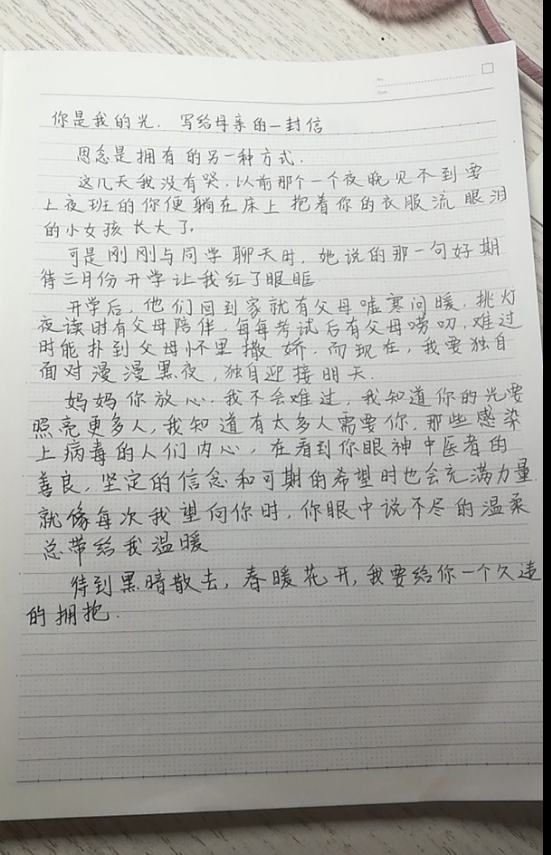 No.
Date
你是我的光. 写给母亲的一封信
思念是拥有的另一种方式.
这几天我没有哭.以前那个一个夜晚见不到要
上夜班的你便躺在床上抱着你的衣服流眼泪
的小女孩长大了.
可是刚刚与同学聊天时,她说的那一句好期
待三月份开学让我红了眼眶
开学后,他们回到家就有父母嘘寒问暖,挑灯
夜读时有父母陪伴,每每考试后有父母唠叨,难过
时能扑到父母怀里撒娇.而现在,我要独自
面对漫漫黑夜,独自迎接明天.
妈妈你放心.我不会难过,我知道你的光要
照亮更多人,我知道有太多人需要你.那些感染
上病毒的人们内心,在看到你眼神中医者的
善良,坚定的信念和可期的希望时也会充满力量.
就像每次我望向你时,你眼中说不尽的温柔
总带给我温暖
待到黑暗散去,春暖花开,我要给你一个久违
的拥抱.